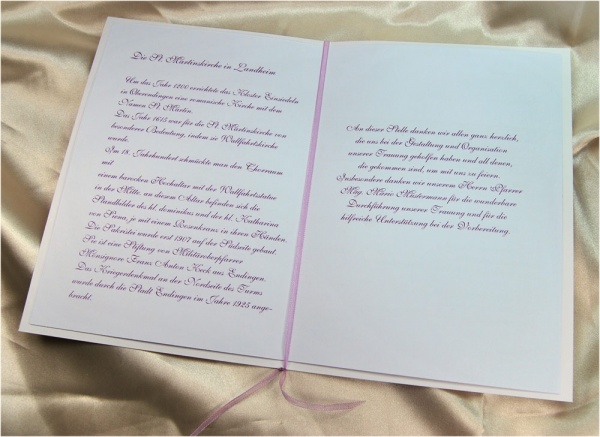 Die St. Martinskirche in Landheim
Um das Jahr 1200 errichtete das Kloster Einsiedeln
in Oberendingen eine romanische Kirche mit dem
Namen St. Martin.
Das Jahr 1615 war für die St. Martinskirche von
besonderer Bedeutung, indem sie Wallfahrtskirche
wurde.
Im 18. Jahrhundert schmückte man den Chorraum
mit
einem barocken Hochaltar mit der Wallfahrtsstatue
in der Mitte, an diesem Altar befinden sich die
Standbilder des hl. dominikus und der hl. Katharina
von Siena, je mit einem Rosenkranz in ihren Händen.
Die Sakristei wurde erst 1907 auf der Südseite gebaut.
Sie ist eine Stiftung von Militäroberpfarrer
Monsignore Franz Anton Keck aus Endingen.
Das Kriegerdenkmal an der Nordseite des Turms
wurde durch die Stadt Endingen im Jahre 1925 ange-
bracht.
An dieser Stelle danken wir allen ganz herzlich,
die uns bei der Gestaltung und Organisation
unserer Trauung geholfen haben und all denen,
die gekommen sind, um mit uns zu feiern.
Insbesondere danken wir unserem Herrn Pfarrer
Mag. Marco Mustermann für die wunderbare
Durchführung unserer Trauung und für die
hilfreiche Unterstützung bei der Vorbereitung.